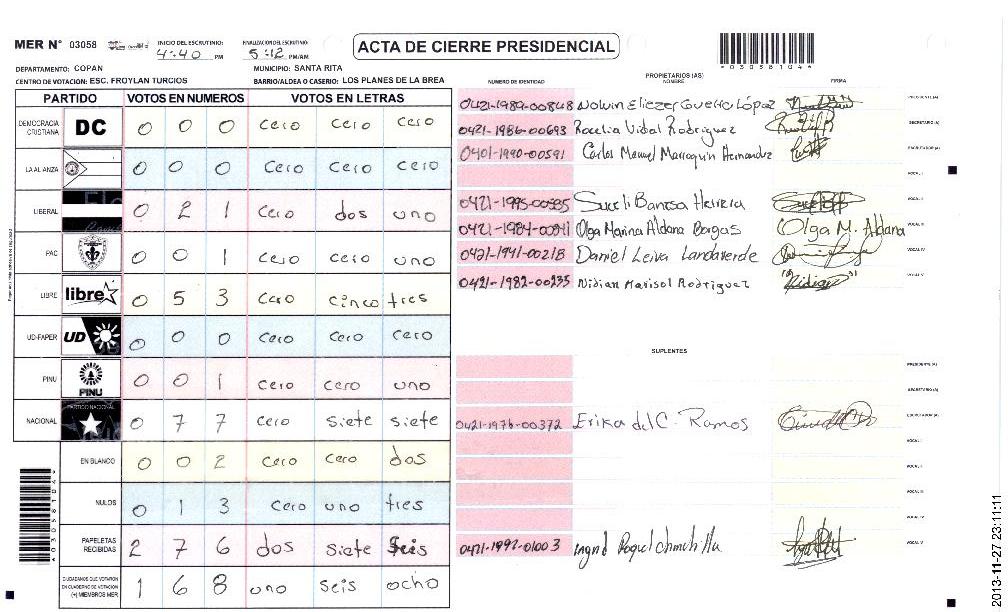 MER N° 03058
INICIO DEL ESCRUTINIO: 4:40 PM
FINALIZACIÓN DEL ESCRUTINIO: 5:12 PM/AM
ACTA DE CIERRE PRESIDENCIAL
*0305810 4*
DEPARTAMENTO: COPAN
MUNICIPIO: SANTA RITA
CENTRO DE VOTACION: ESC. FROYLAN TURCIOS
BARRIO/ALDEA O CASERIO: LOS PLANES DE LA BREA
PARTIDO VOTOS EN NUMEROS VOTOS EN LETRAS
DEMOCRACIA CRISTIANA DC 0 0 0 cero cero cero
LA ALIANZA 0 0 0 cero cero cero
LIBERAL 0 2 1 cero dos uno
PAC 0 0 1 cero cero uno
LIBRE libre 0 5 3 cero cinco tres
UD-FAPER UD 0 0 0 cero cero cero
PINU PINU 0 0 1 cero cero uno
NACIONAL PARTIDO NACIONAL 0 7 7 cero siete siete
EN BLANCO 0 0 2 cero cero dos
NULOS 0 1 3 cero uno tres
PAPELETAS RECIBIDAS 2 7 6 dos siete seis
CIUDADANOS QUE VOTARON EN CUADERNO DE VOTACION (+) MIEMBROS MER 1 6 8 uno seis ocho
NUMERO DE IDENTIDAD PROPIETARIOS (AS) NOMBRE FIRMA
0421-1989-00848 Nolvin Eliezer Guerra López PRESIDENTE (A)
0421-1986-00693 Rocelia Vidal Rodriguez SECRETARIO (A)
0401-1990-00591 Carlos Manuel Marroquin Hernandez ESCRUTADOR (A)
VOCAL I
0421-1995-00585 Suceli Banesa Herrera VOCAL II
0421-1984-00841 Olga Marina Aldana Borgas Olga M. Aldana VOCAL III
0421-1941-00218 Daniel Leiva Landaverde VOCAL IV
0421-1982-00235 Nidian Marisol Rodriguez VOCAL V
SUPLENTES
PRESIDENTE (A)
SECRETARIO (A)
0421-1976-00372 Erika del C. Ramos ESCRUTADOR (A)
VOCAL I
VOCAL II
VOCAL III
VOCAL IV
0421-1992-01003 Ingrid Raquel Chinchilla VOCAL V
2013-11-27 23:11:11